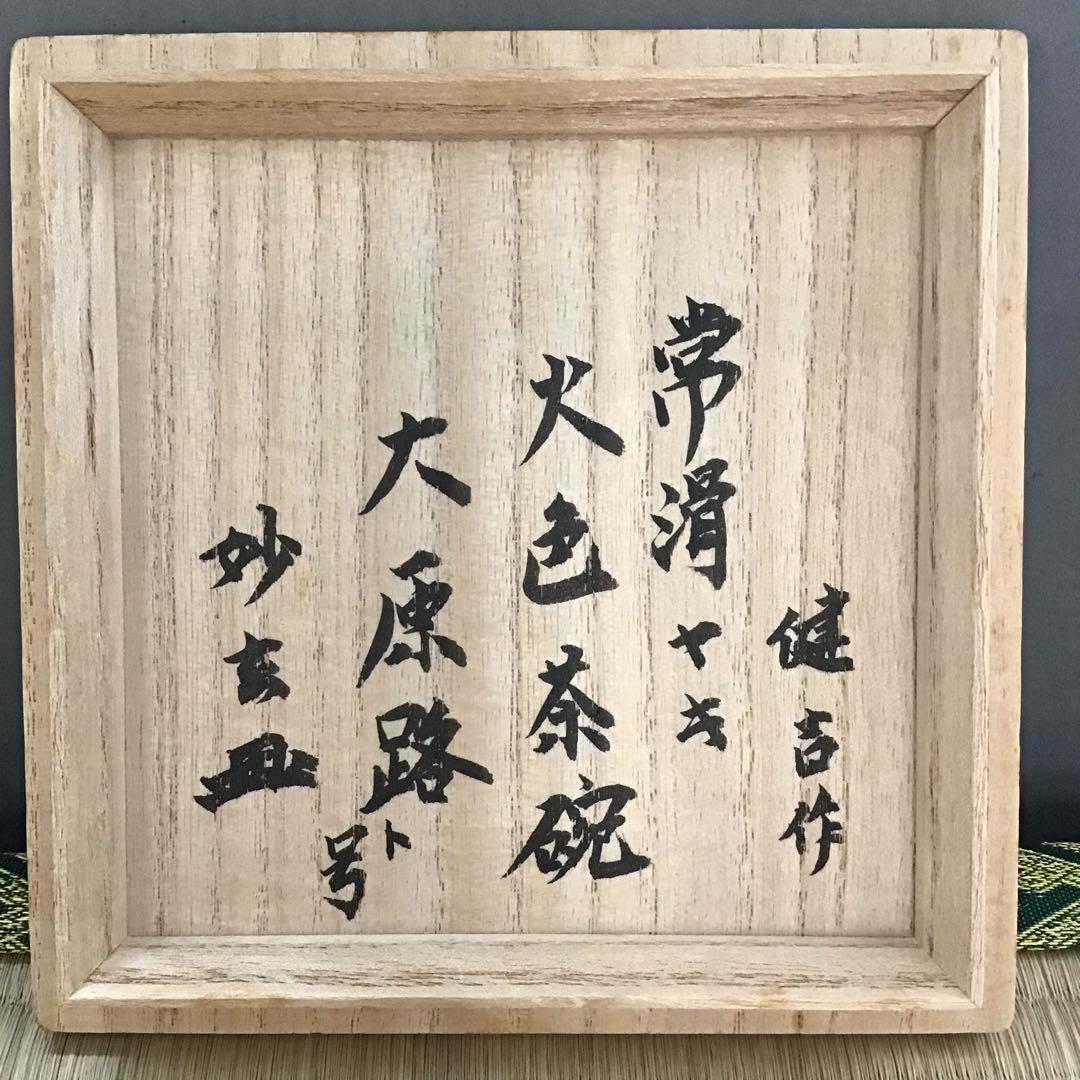 健吉作
常滑ヤキ
火色茶碗
大原路ト
号
妙玄